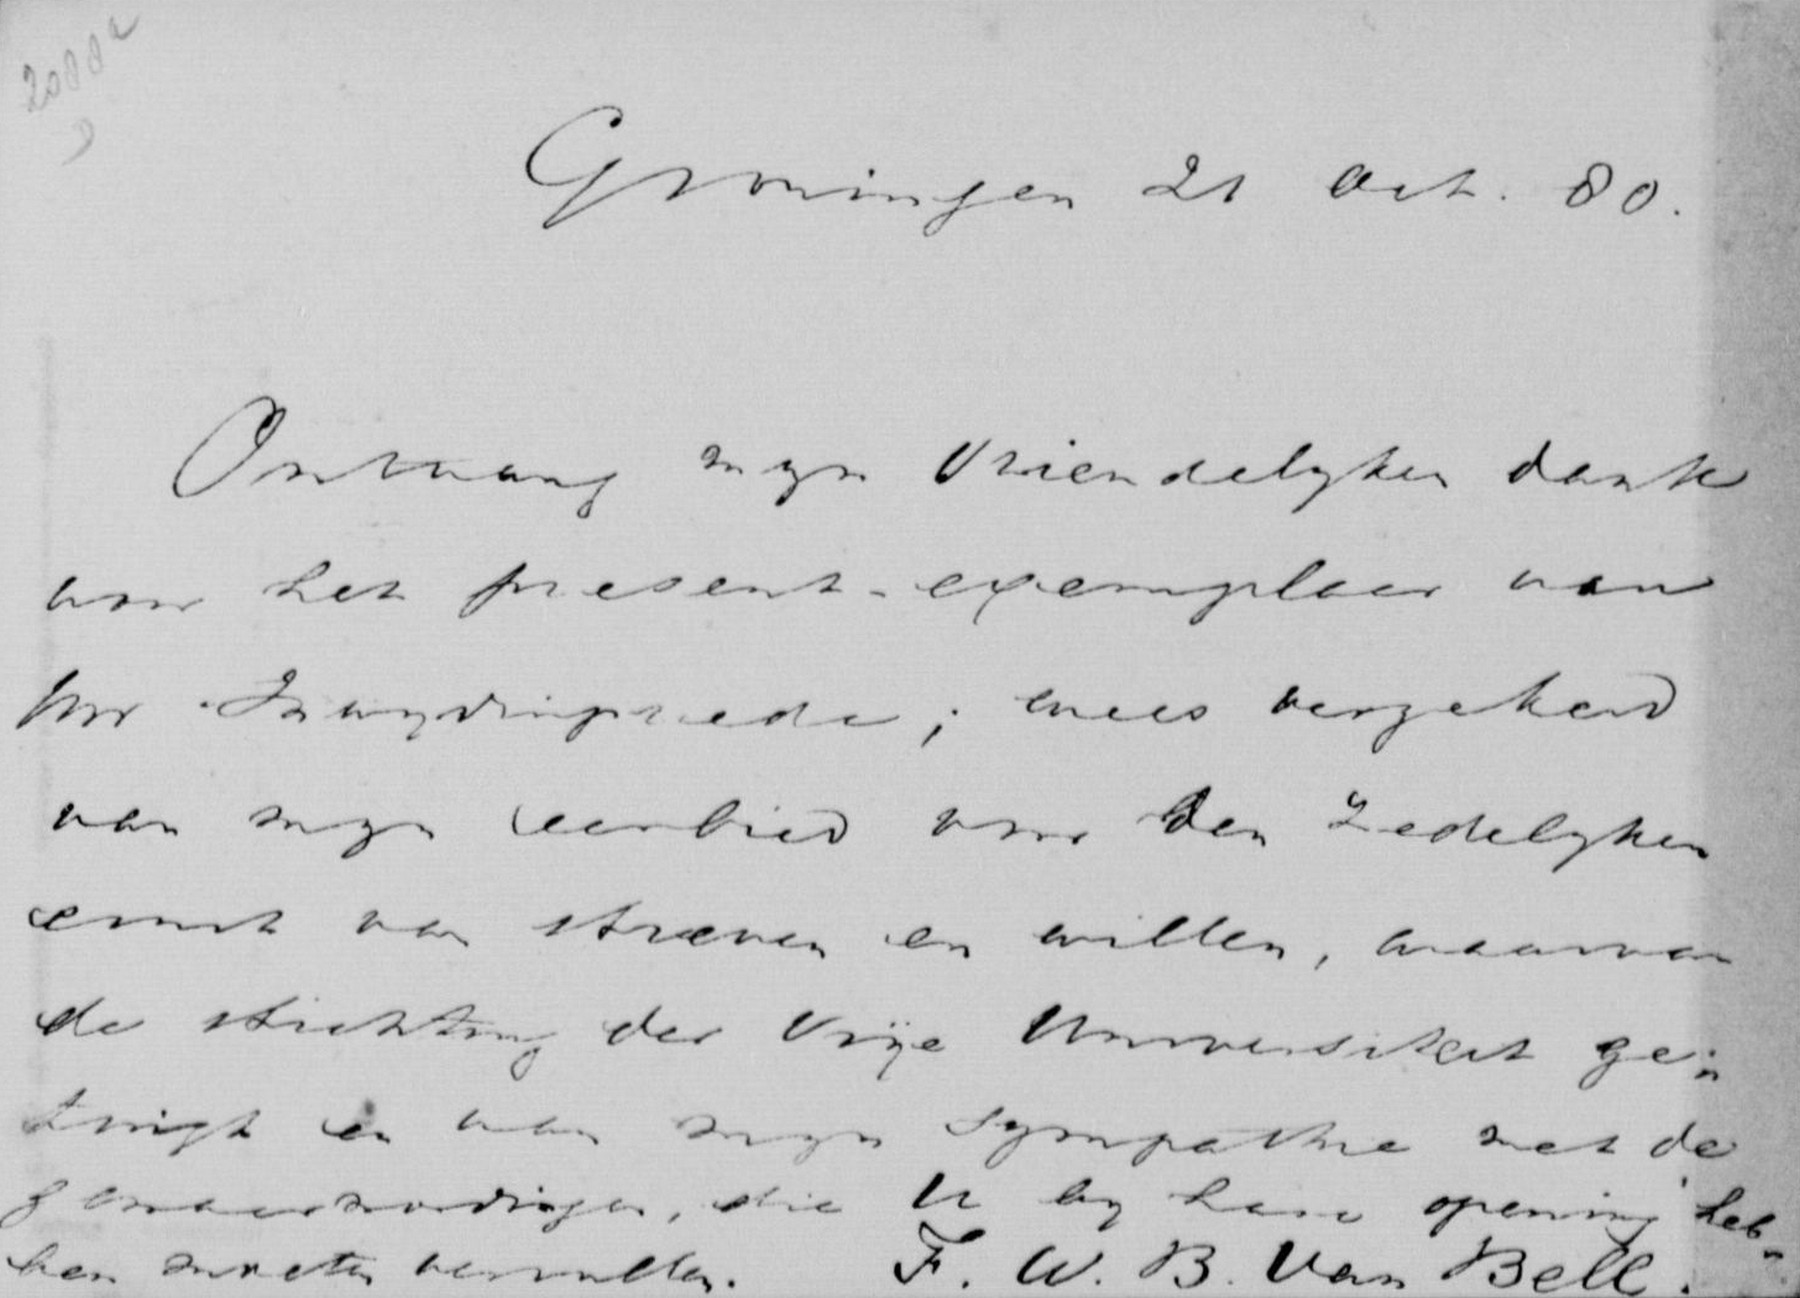 2000a
Groningen 21 Oct. 80.
Ontvang myn vriendelyken dank
voor het present-exemplaar van
Uw Inwydingsrede; wees verzekerd
van myn eerbied voor den zedelyken
ernst van streven en willen, waarvan
de stichting der Vrije Universiteit ge-
tuigt en van myn sympathie met de
gewaarwordingen, die U by hare opening heb-
ben moeten vervullen. F. W. B. Van Bell.